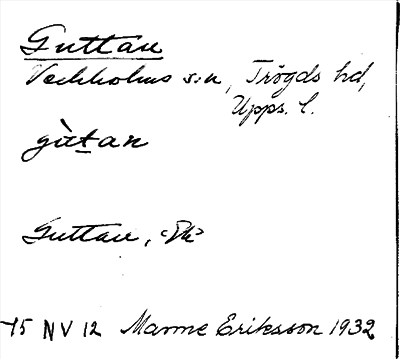 Guttan
Veckholms s:n, Trögds hd,
Upps. l.
gùtan
Guttan,
75 NV 12 Manne Eriksson 1932